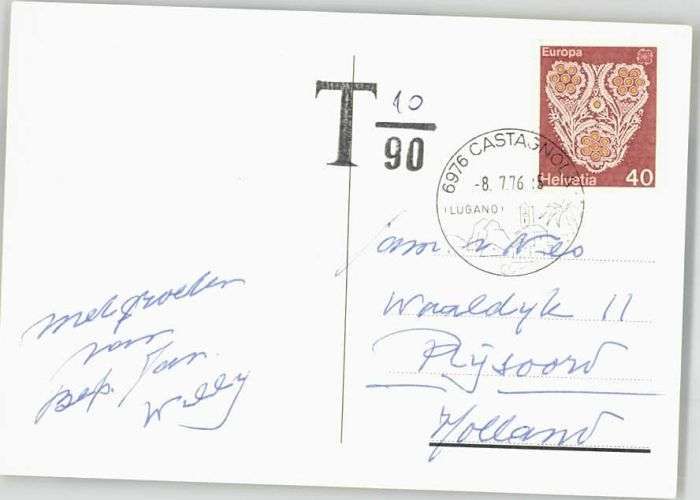 Europa
Helvetia 40
T 10
90
6976 CASTAGNOLA
-8. 7.76
(LUGANO)
Fam. v. Nes
Waaldyk 11
Rijsoord
Holland
met groeten
van
Bep. Jan.
Willy